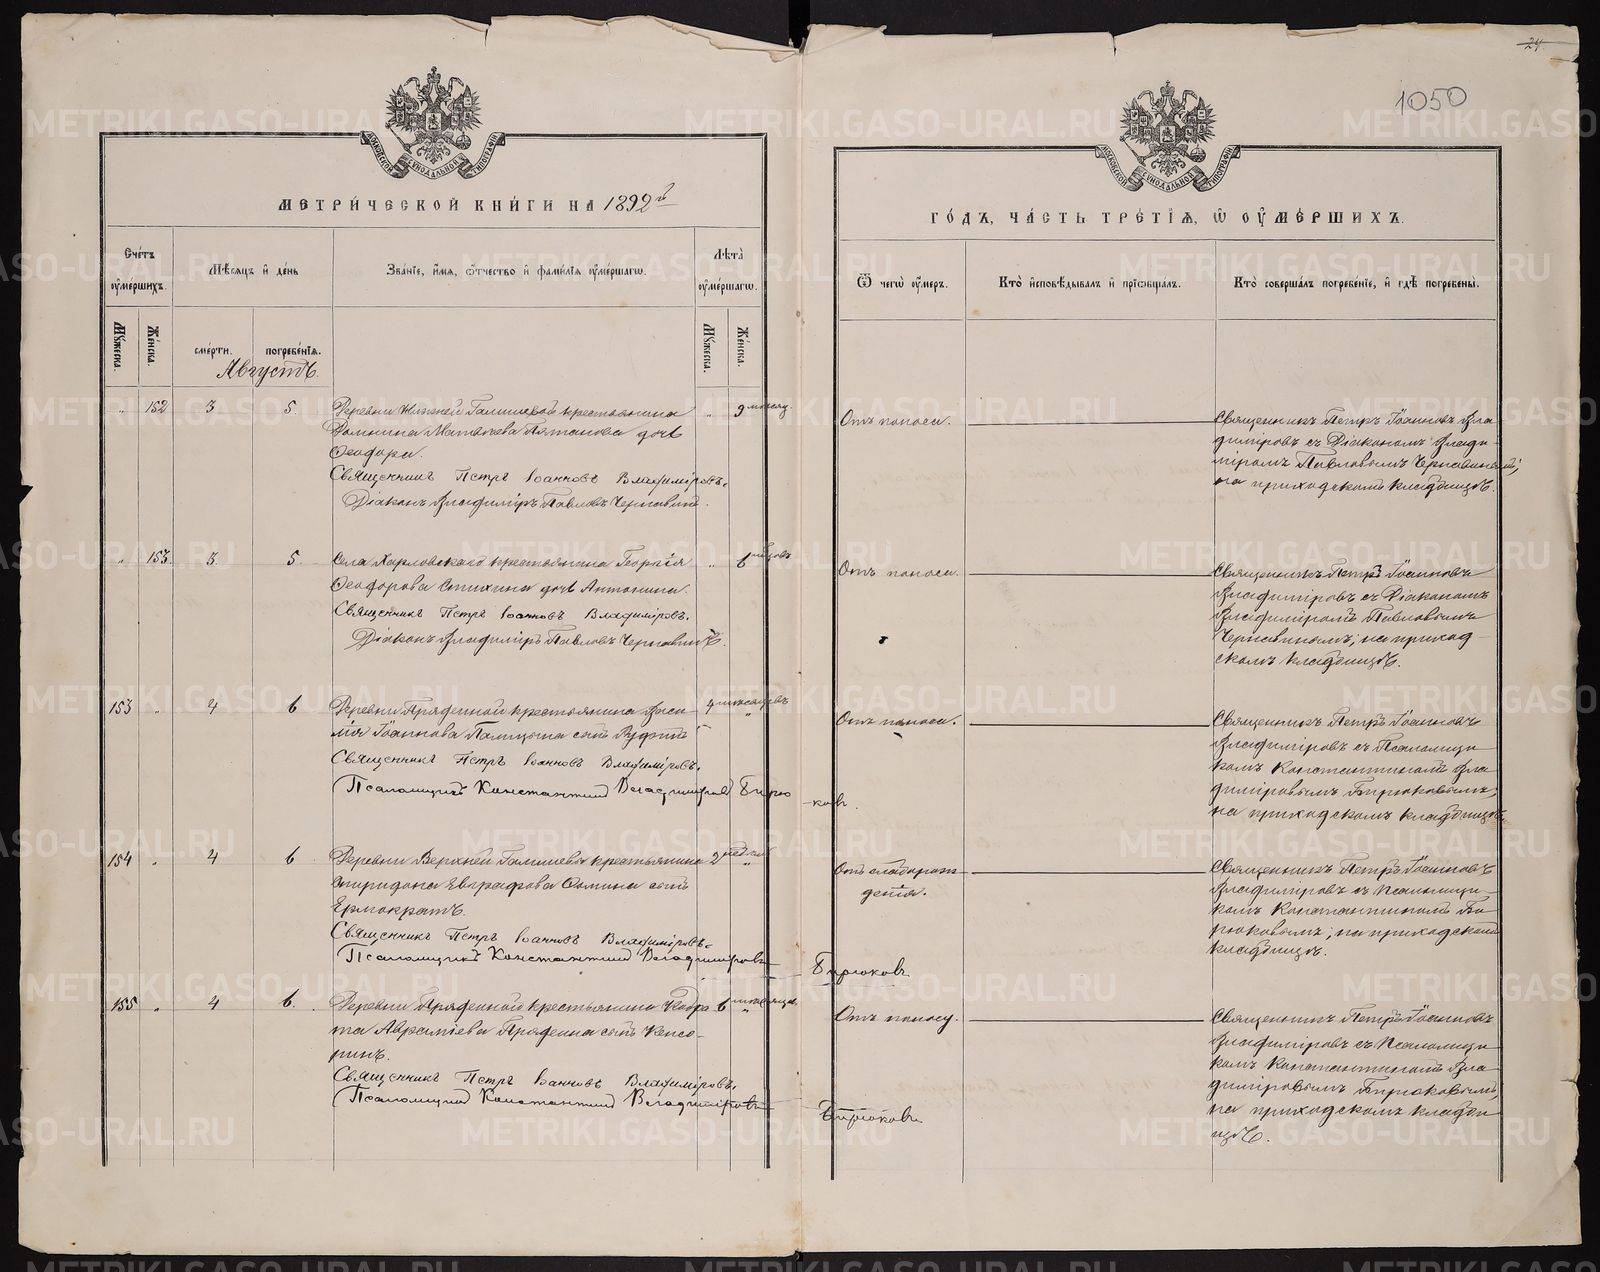 24
1050
МОСКОВСКОЙ СѴНОДАЛЬНОЙ ТИПОГРАФІИ
МЕТРИ́ЧЕСКОЙ КНИ́ГИ НА 1892й
Сче́тъ ᲂу҆ме́ршихъ.
Мѣ́сяцъ и҆ де́нь
Зва́нїе, и҆́мя, ѻ҆́тчество и҆ фамѝлїя ᲂу҆ме́ршагѡ.
Лѣ́та ᲂу҆ме́ршагѡ.
Мꙋ́жеска. Же́нска.
сме́рти. погребе́нїя.
Мꙋ́жеска. Же́нска.
Августъ.
„ 152 3 5. Деревни Нижней Галишевой крестьянина „ 9 месяц.
Домнина Матвѣева Пятанова дочь
Ѳеодора.
Священникъ Петръ Іоанновъ Владиміровъ.
Діаконъ Владиміръ Павловъ Чернавинъ.
„ 153 3 5 Села Харловскаго крестьянина Георгія „ 6 мѣсяцовъ
Ѳеодорова Стихина дочь Антонина.
Священникъ Петръ Іоанновъ Владиміровъ.
Діаконъ Владиміръ Павловъ Чернавинъ.
153 „ 4 6 Деревни Пряденной крестьянина Васи- 4 мѣсяцовъ „
лія Іоаннова Палицына сынъ Руфинъ
Священникъ Петръ Іоанновъ Владиміровъ.
Псаломщикъ Константинъ Владиміровъ Бирюковъ.
154 „ 4 6 Деревни Верхней Галишевы крестьянина 2 недѣли „
Спиридона Евграфова Ѳомина сынъ
Ермократъ.
Священникъ Петръ Іоанновъ Владиміровъ.
Псаломщикъ Константинъ Владиміровъ Бирюковъ.
155 „ 4 6. Деревни Пряденной крестьянина Кодра- 6 мѣсяцов „
та Авраміева Пряденна сынъ Кенсо-
ринъ.
Священникъ Петръ Іоанновъ Владиміровъ.
Псаломщикъ Константинъ Владиміровъ Бирюковъ.
МОСКОВСКОЙ СѴНОДАЛЬНОЙ ТИПОГРАФІИ
ГО́ДЪ, ЧА́СТЬ ТРЕ́ТЇЯ, Ѽ ОУ҆МЕ́РШИХЪ.
Ѿ чегѡ̀ ᲂу҆́меръ.
Кто̀ и҆сповѣ́дывалъ и҆ прїѡбща́лъ.
Кто̀ соверша́лъ погребе́нїе, и҆ гдѣ̀ погребены̀.
Отъ поноса.
Священникъ Петръ Іоанновъ Вла-
диміровъ съ Діакономъ Влади-
міромъ Павловымъ Чернавинымъ;
на приходскомъ кладбищѣ.
Отъ поноса.
Священникъ Петръ Іоанновъ
Владиміровъ съ Діакономъ
Владиміромъ Павловымъ
Чернавинымъ; на приход-
скомъ кладбищѣ.
Отъ поноса.
Священникъ Петръ Іоанновъ
Владиміровъ съ Псаломщи-
комъ Константиномъ Вла-
диміровымъ Бирюковымъ;
на приходскомъ кладбищѣ.
Отъ слаборож-
денія.
Священникъ Петръ Іоанновъ
Владиміровъ съ Псаломщи-
комъ Константиномъ Би-
рюковымъ; на приходскомъ
кладбищѣ.
Отъ поносу.
Священникъ Петръ Іоанновъ
Владиміровъ съ Псаломщи-
комъ Константиномъ Вла-
диміровымъ Бирюковымъ;
на приходскомъ кладби-
щѣ.
METRIKI.GASO-URAL.RU